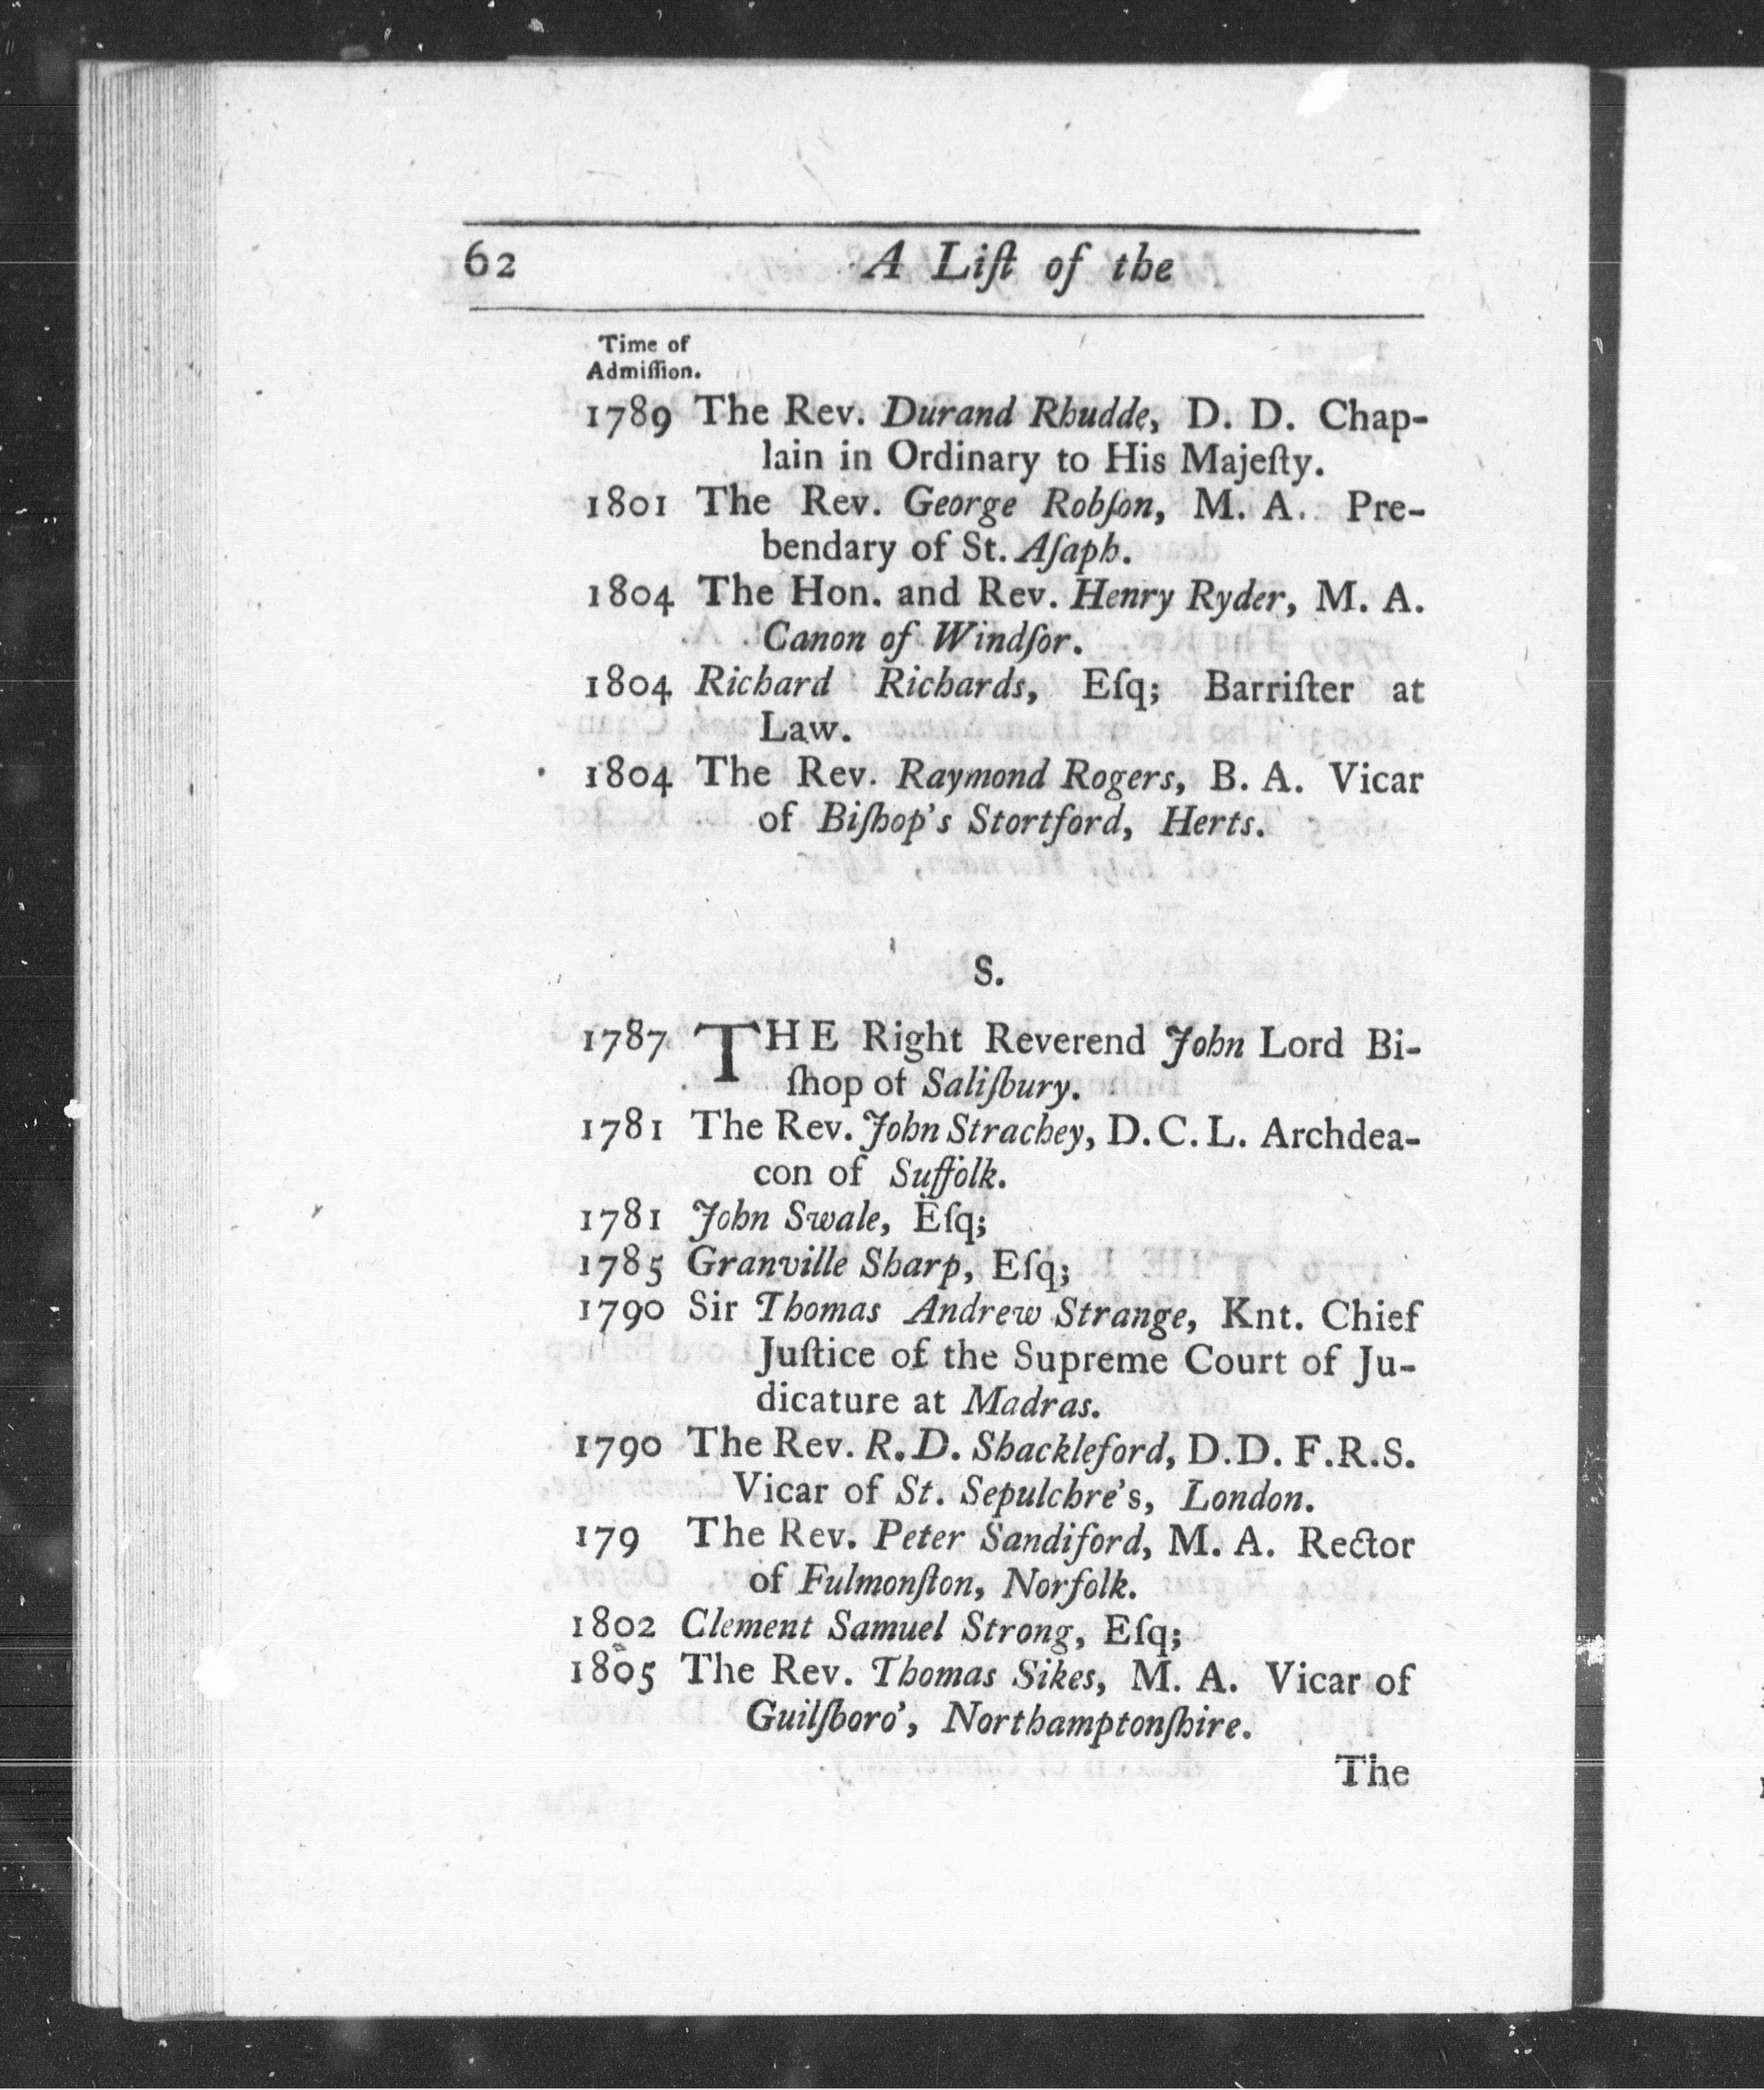 62 A Liſt of the
Time of
Admiſſion.
1789 The Rev. Durand Rhudde, D. D. Chap-
lain in Ordinary to His Majeſty.
1801 The Rev. George Robſon, M. A. Pre-
bendary of St. Aſaph.
1804 The Hon. and Rev. Henry Ryder, M. A.
Canon of Windſor.
1804 Richard Richards, Eſq; Barriſter at
Law.
1804 The Rev. Raymond Rogers, B. A. Vicar
of Biſhop's Stortford, Herts.
S.
1787 THE Right Reverend John Lord Bi-
ſhop of Saliſbury.
1781 The Rev. John Strachey, D.C.L. Archdea-
con of Suffolk.
1781 John Swale, Eſq;
1785 Granville Sharp, Eſq;
1790 Sir Thomas Andrew Strange, Knt. Chief
Juſtice of the Supreme Court of Ju-
dicature at Madras.
1790 The Rev. R. D. Shackleford, D.D. F.R.S.
Vicar of St. Sepulchre's, London.
179 The Rev. Peter Sandiford, M. A. Rector
of Fulmonſton, Norfolk.
1802 Clement Samuel Strong, Eſq;
1805 The Rev. Thomas Sikes, M. A. Vicar of
Guilſboro', Northamptonſhire.
The